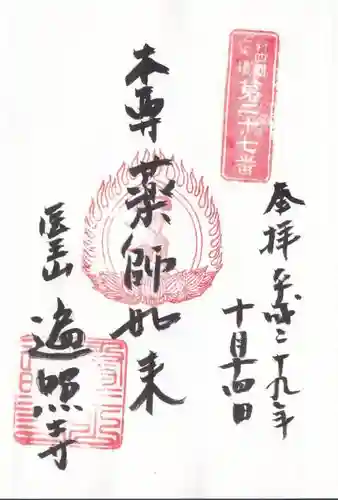 第二十七番
奉拝 平成二十九年
十月十四日
本尊 薬師如来
医王山
遍照寺